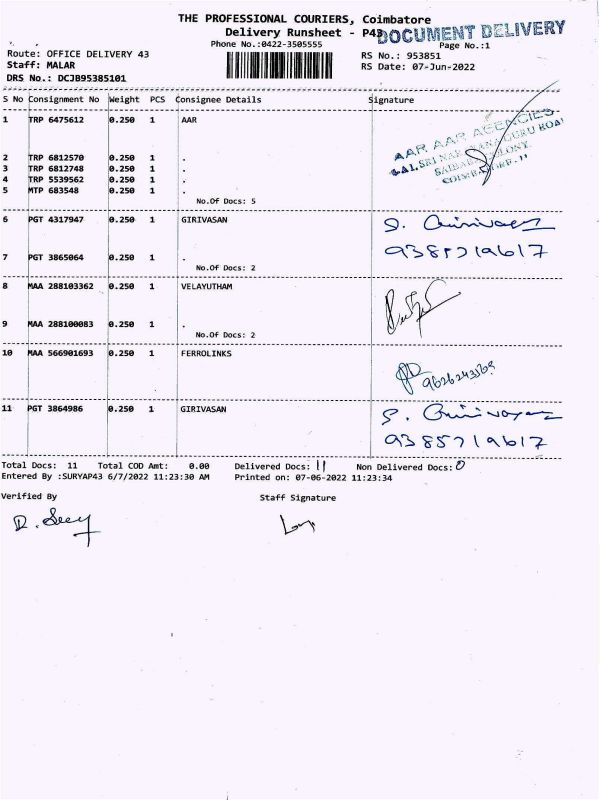 THE PROFESSIONAL COURIERS, Coimbatore
Delivery Runsheet - P43
DOCUMENT DELIVERY
Phone No.:0422-3505555
Page No.:1
Route: OFFICE DELIVERY 43
RS No.: 953851
Staff: MALAR
RS Date: 07-Jun-2022
DRS No.: DCJB95385101
S No Consignment No Weight PCS Consignee Details Signature
1 TRP 6475612 0.250 1 AAR
AAR AAR AGENCIES
2 TRP 6812570 0.250 1 .
3 TRP 6812748 0.250 1 .
4 TRP 5539562 0.250 1 .
5 MTP 683548 0.250 1 .
No.Of Docs: 5
6 PGT 4317947 0.250 1 GIRIVASAN
9385719617
7 PGT 3865064 0.250 1 .
No.Of Docs: 2
8 MAA 288103362 0.250 1 VELAYUTHAM
9 MAA 288100083 0.250 1 .
No.Of Docs: 2
10 MAA 566901693 0.250 1 FERROLINKS
11 PGT 3864986 0.250 1 GIRIVASAN
9385719617
Total Docs: 11 Total COD Amt: 0.00 Delivered Docs: 11 Non Delivered Docs: 0
Entered By :SURYAP43 6/7/2022 11:23:30 AM Printed on: 07-06-2022 11:23:34
Verified By Staff Signature